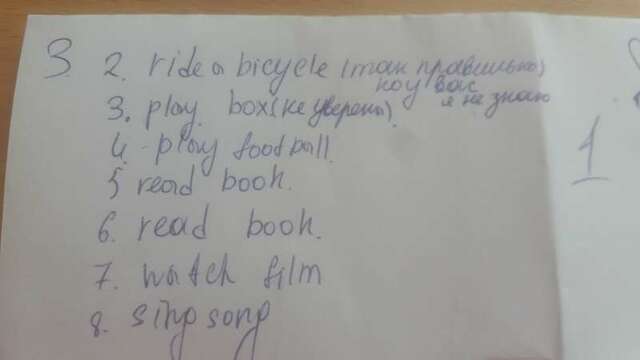 3
2. ride a bicycle (так правильно)
но у вас
я не знаю
3. play box (не уверены).
4. play football.
5 read book.
6. read book.
7. watch film
8. sing song
1